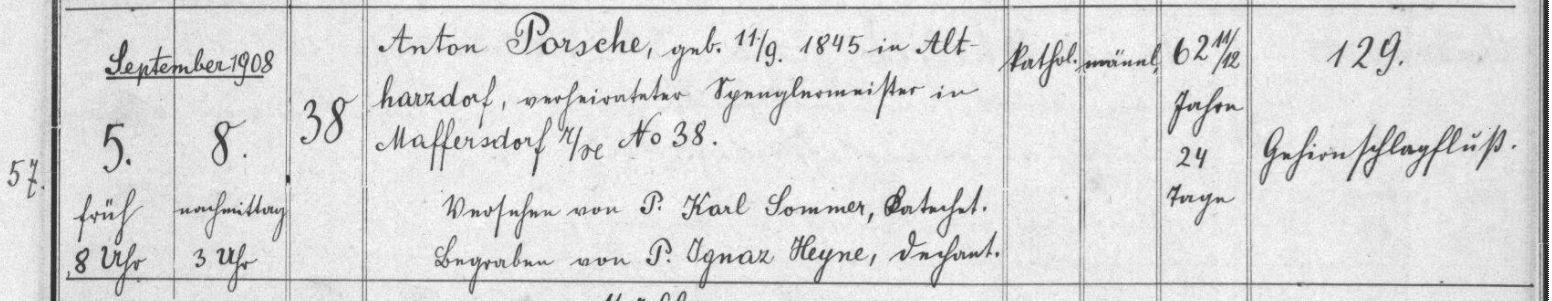 57.
September 1908
5. 8.
früh nachmittag
8 Uhr 3 Uhr
38
Anton Porsche, geb. 11/9. 1845 in Alt-
harzdorf, verheirateter Spenglermeister in
Maffersdorf No 38.
Versehen von P. Karl Sommer, Katechet.
Begraben von P. Ignaz Heyne, Dechant.
kathol.
männl.
62 11/12
Jahre
24
Tage
129.
Gehirnschlagfluß.